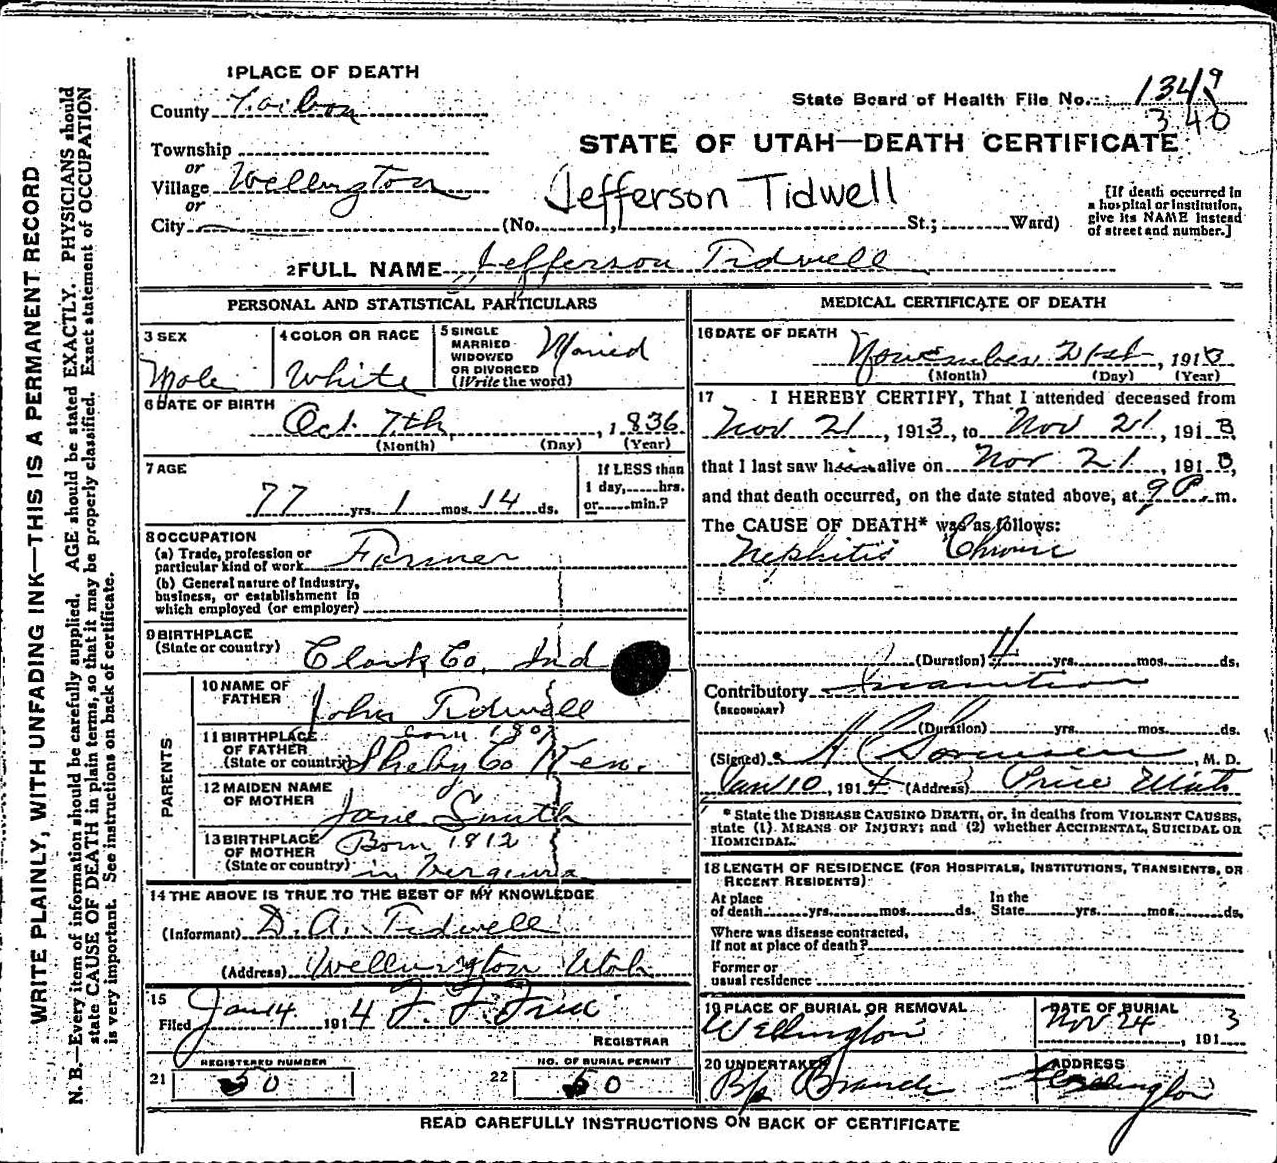 WRITE PLAINLY, WITH UNFADING INK—THIS IS A PERMANENT RECORD
N. B.—Every item of information should be carefully supplied. AGE should be stated EXACTLY. PHYSICIANS should
state CAUSE OF DEATH in plain terms, so that it may be properly classified. Exact statement of OCCUPATION
is very important. See instructions on back of certificate.
1 PLACE OF DEATH
County
State Board of Health File No. 1349
340
STATE OF UTAH—DEATH CERTIFICATE
Township
or
Village Wellington
or
City
Jefferson Tidwell
(No. St.; Ward)
[If death occurred in
a hospital or institution,
give its NAME instead
of street and number.]
2 FULL NAME Jefferson Tidwell
PERSONAL AND STATISTICAL PARTICULARS
3 SEX
Male
4 COLOR OR RACE
White
5 SINGLE
MARRIED
WIDOWED
OR DIVORCED
(Write the word)
Married
6 DATE OF BIRTH
Oct. 7th, 1836
(Month) (Day) (Year)
7 AGE
77 yrs. 1 mos. 14 ds.
If LESS than
1 day, hrs.
or min.?
8 OCCUPATION
(a) Trade, profession or
particular kind of work Farmer
(b) General nature of Industry,
business, or establishment in
which employed (or employer)
9 BIRTHPLACE
(State or country) Clark Co, Ind
PARENTS
10 NAME OF
FATHER John Tidwell
born 1807
11 BIRTHPLACE
OF FATHER
(State or country) Shelby Co Ken.
12 MAIDEN NAME
OF MOTHER Jane Smith
13 BIRTHPLACE
OF MOTHER
(State or country)
Born 1812
in Verginia
14 THE ABOVE IS TRUE TO THE BEST OF MY KNOWLEDGE
(Informant) D. A. Tidwell
(Address) Wellington Utah
15
Filed Jan 14 1914
REGISTRAR
REGISTERED NUMBER
21 50
NO. OF BURIAL PERMIT
22 50
MEDICAL CERTIFICATE OF DEATH
16 DATE OF DEATH
November 21st, 1913
(Month) (Day) (Year)
17 I HEREBY CERTIFY, That I attended deceased from
Nov 21, 1913, to Nov 21, 1913,
that I last saw him alive on Nov 21, 1913,
and that death occurred, on the date stated above, at 9 P. m.
The CAUSE OF DEATH* was as follows:
Nephitis Chronic
(Duration) 4 yrs. mos. ds.
Contributory Inanition
(SECONDARY)
(Duration) yrs. mos. ds.
(Signed) Sorensen, M. D.
Jan 10, 1914 (Address) Price Utah
* State the DISEASE CAUSING DEATH, or, in deaths from VIOLENT CAUSES,
state (1) MEANS OF INJURY; and (2) whether ACCIDENTAL, SUICIDAL OR
HOMICIDAL.
18 LENGTH OF RESIDENCE (FOR HOSPITALS, INSTITUTIONS, TRANSIENTS, OR
RECENT RESIDENTS)
At place
of death yrs. mos. ds.
In the
State yrs. mos. ds.
Where was disease contracted,
If not at place of death?
Former or
usual residence
19 PLACE OF BURIAL OR REMOVAL
Wellington
DATE OF BURIAL
Nov 24, 1913
20 UNDERTAKER
Bp Branch
ADDRESS
Wellington
READ CAREFULLY INSTRUCTIONS ON BACK OF CERTIFICATE